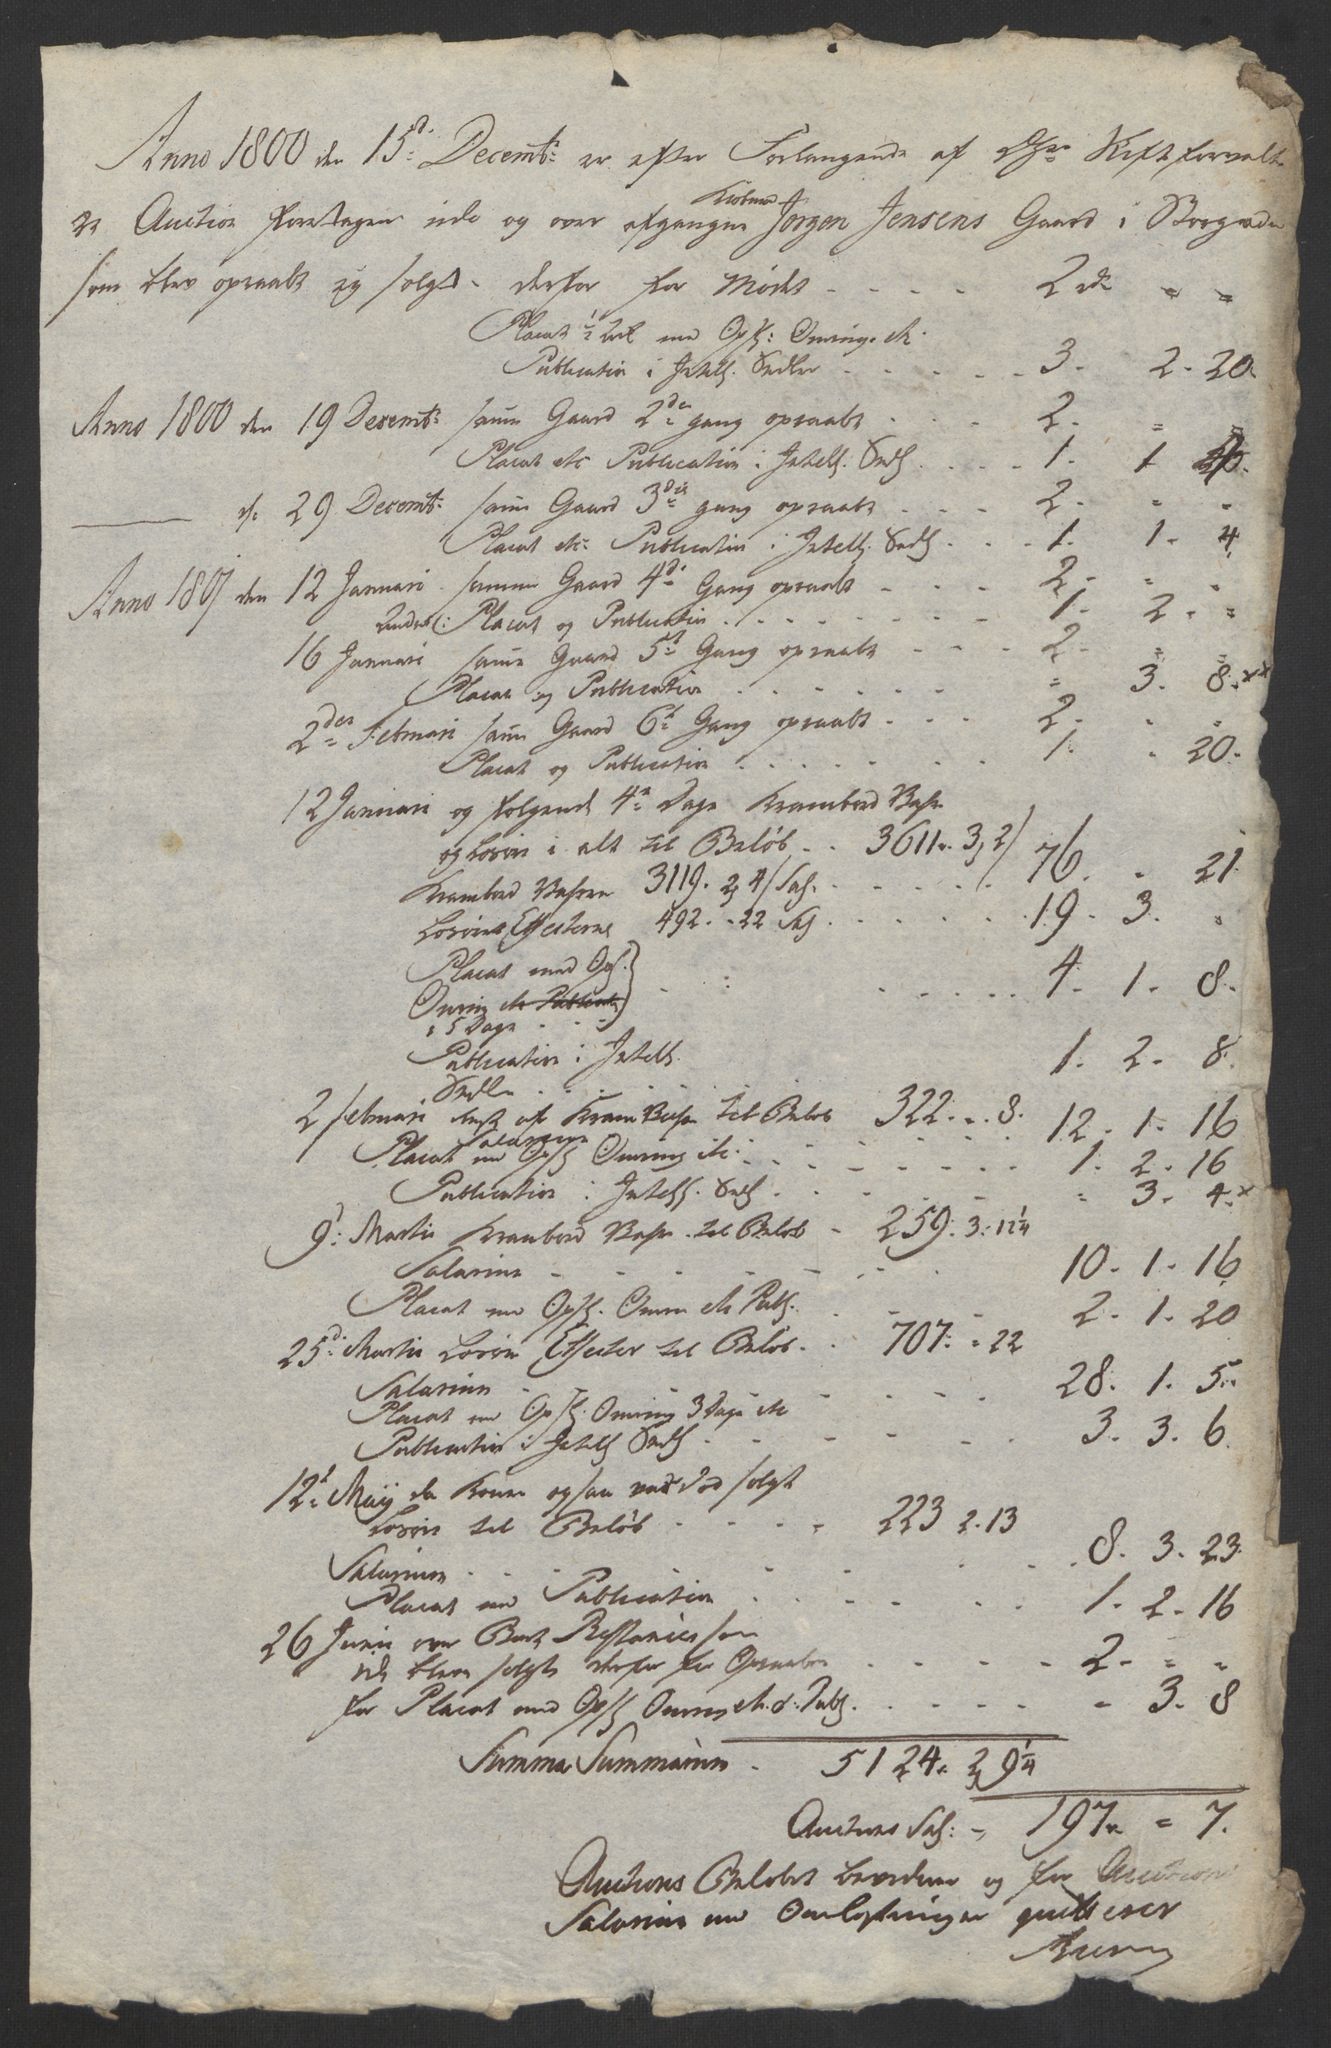 Anno 1800 den 15d: Decemb: er efter Forlangende af Skifteforvalt
er Auction foretagen ude og over afgangne Kiøbmd Jørgen Jensens Gaard i Storgaden
som blev opraabt og solgt - derfor for Mødet - - - - 2 rd " "
Placat med Ops: Omring. etc.
Publication i Intell. Sedler - - - - - 3. 2. 20.
Anno 1800 den 19 Decemb: samme Gaard 2den gang opraabt - - - 2. " "
Placat etc Publication i Intell. Sedl. - - - 1. 1
d: 29 Decemb: samme Gaard 3die gang opraabt - - - 2. " "
Placat etc Publication i Intell. Sedl. - - - 1. 1. 4.
Anno 1801 den 12 Januari samme Gaard 4de Gang opraabt - - - 2. " "
Placat og Publication - - - - - 1. 2. "
16 Januari samme Gaard 5te Gang opraabt - - - 2. " "
Placat og Publication - - - - - " 3. 8. xx
2den Februari samme Gaard 6te Gang opraabt - - - 2. " "
Placat og Publication - - - - - 1. " 20.
12 Januari og følgende 4re Dage Krambod Vahre
og Løsøre i alt til Beløb - - 3611. 3, 2/ 76. " 21.
Krambod Vahren 3119. 2, 4/ Sal. - - - -
Løsøre Effecterne 492. " 22 Sal - - - - 19. 3. "
Placat med Ops.
Omring etc Publicatio - - - - - 4. 1. 8.
i 5 Dage - - -
Publication i Intell.
Sedler - - - 1. 2. 8.
2 Februari af Kram Vahre til Beløb 322. " 8. 12. 1. 16
Salarium
Placat med Ops Omring etc. - - - - - 1. 2. 16
Publication i Intell. Sedl. - - - - - " 3. 4. x
9: Martii Krambod Vahre til Beløb - 259. 3. 12 1/4
Salarium - - - - - 10. 1. 16
Placat med Ops. Omring etc Publ. - - - 2. 1. 20
25d: Martii Løsøre Effecter til Beløb - - 707. " 22
Salarium - - - - - 28. 1. 5.
Placat med Ops. Omring 3 Dage etc
Publication i Intell Sedl - - - - - 3. 3. 6.
12t: Maij da Konen ogsaa var død solgt
Løsøre til Beløb - - - - 223 2. 13
Salarium - - - - - 8. 3. 23.
Placat med Publication - - - - - 1. 2. 16
26 Junii over Restancier som
ide bleve solgt derfor for Opraaben - - - - - 2. " "
for Placat med Ops Omring etc. d: Publ. - - - - - " 3. 8
Summa Summarum - 5124. 2, 9 1/4
Auctions Sal: - 197. " 7.
Auctions Beløbet og for Auctions
Salarium med Omkostninger qvitterer